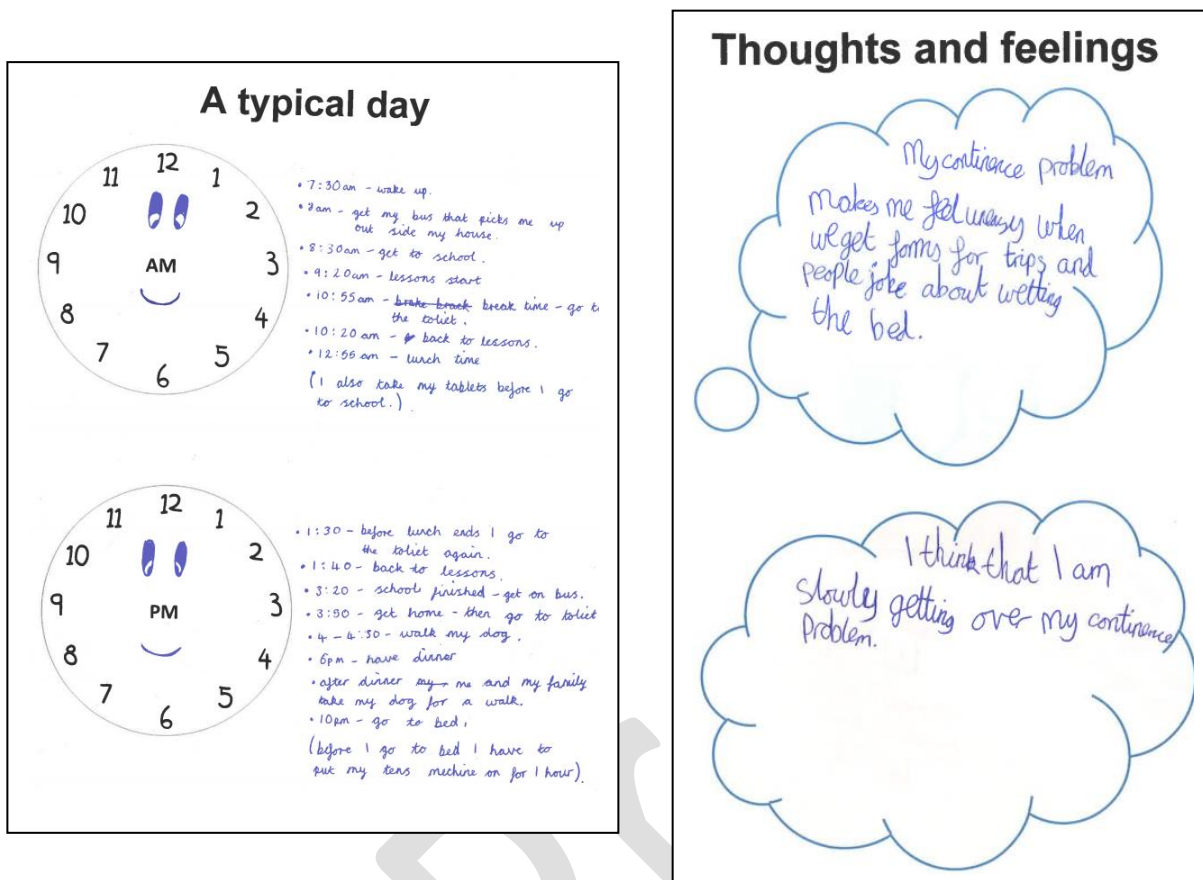 A typical day
12
11
1
10
2
9
AM
3
8
4
7
5
6
• 7:30am - wake up.
• 8am - get my bus that picks me up
out side my house.
• 8:30am - get to school.
• 9:20am - lessons start
• 10:55am - brake brack break time - go t
the toliet.
• 10:20 am - back to lessons.
• 12:55 am - lunch time
(I also take my tablets before I go
to school.)
12
11
1
10
2
9
PM
3
8
4
7
5
6
• 1:30 - before lunch ends I go to
the toliet again.
• 1:40 - back to lessons.
• 3:20 - school finished - get on bus.
• 3:50 - get home - then go to toliet
• 4 - 4:30 - walk my dog.
• 6pm - have dinner
• after dinner my me and my family
take my dog for a walk.
• 10pm - go to bed.
(before I go to bed I have to
put my tens mechine on for 1 hour).
Thoughts and feelings
My continence problem
makes me feel uneasy when
we get forms for trips and
people joke about wetting
the bed.
I think that I am
slowly getting over my continence
problem.